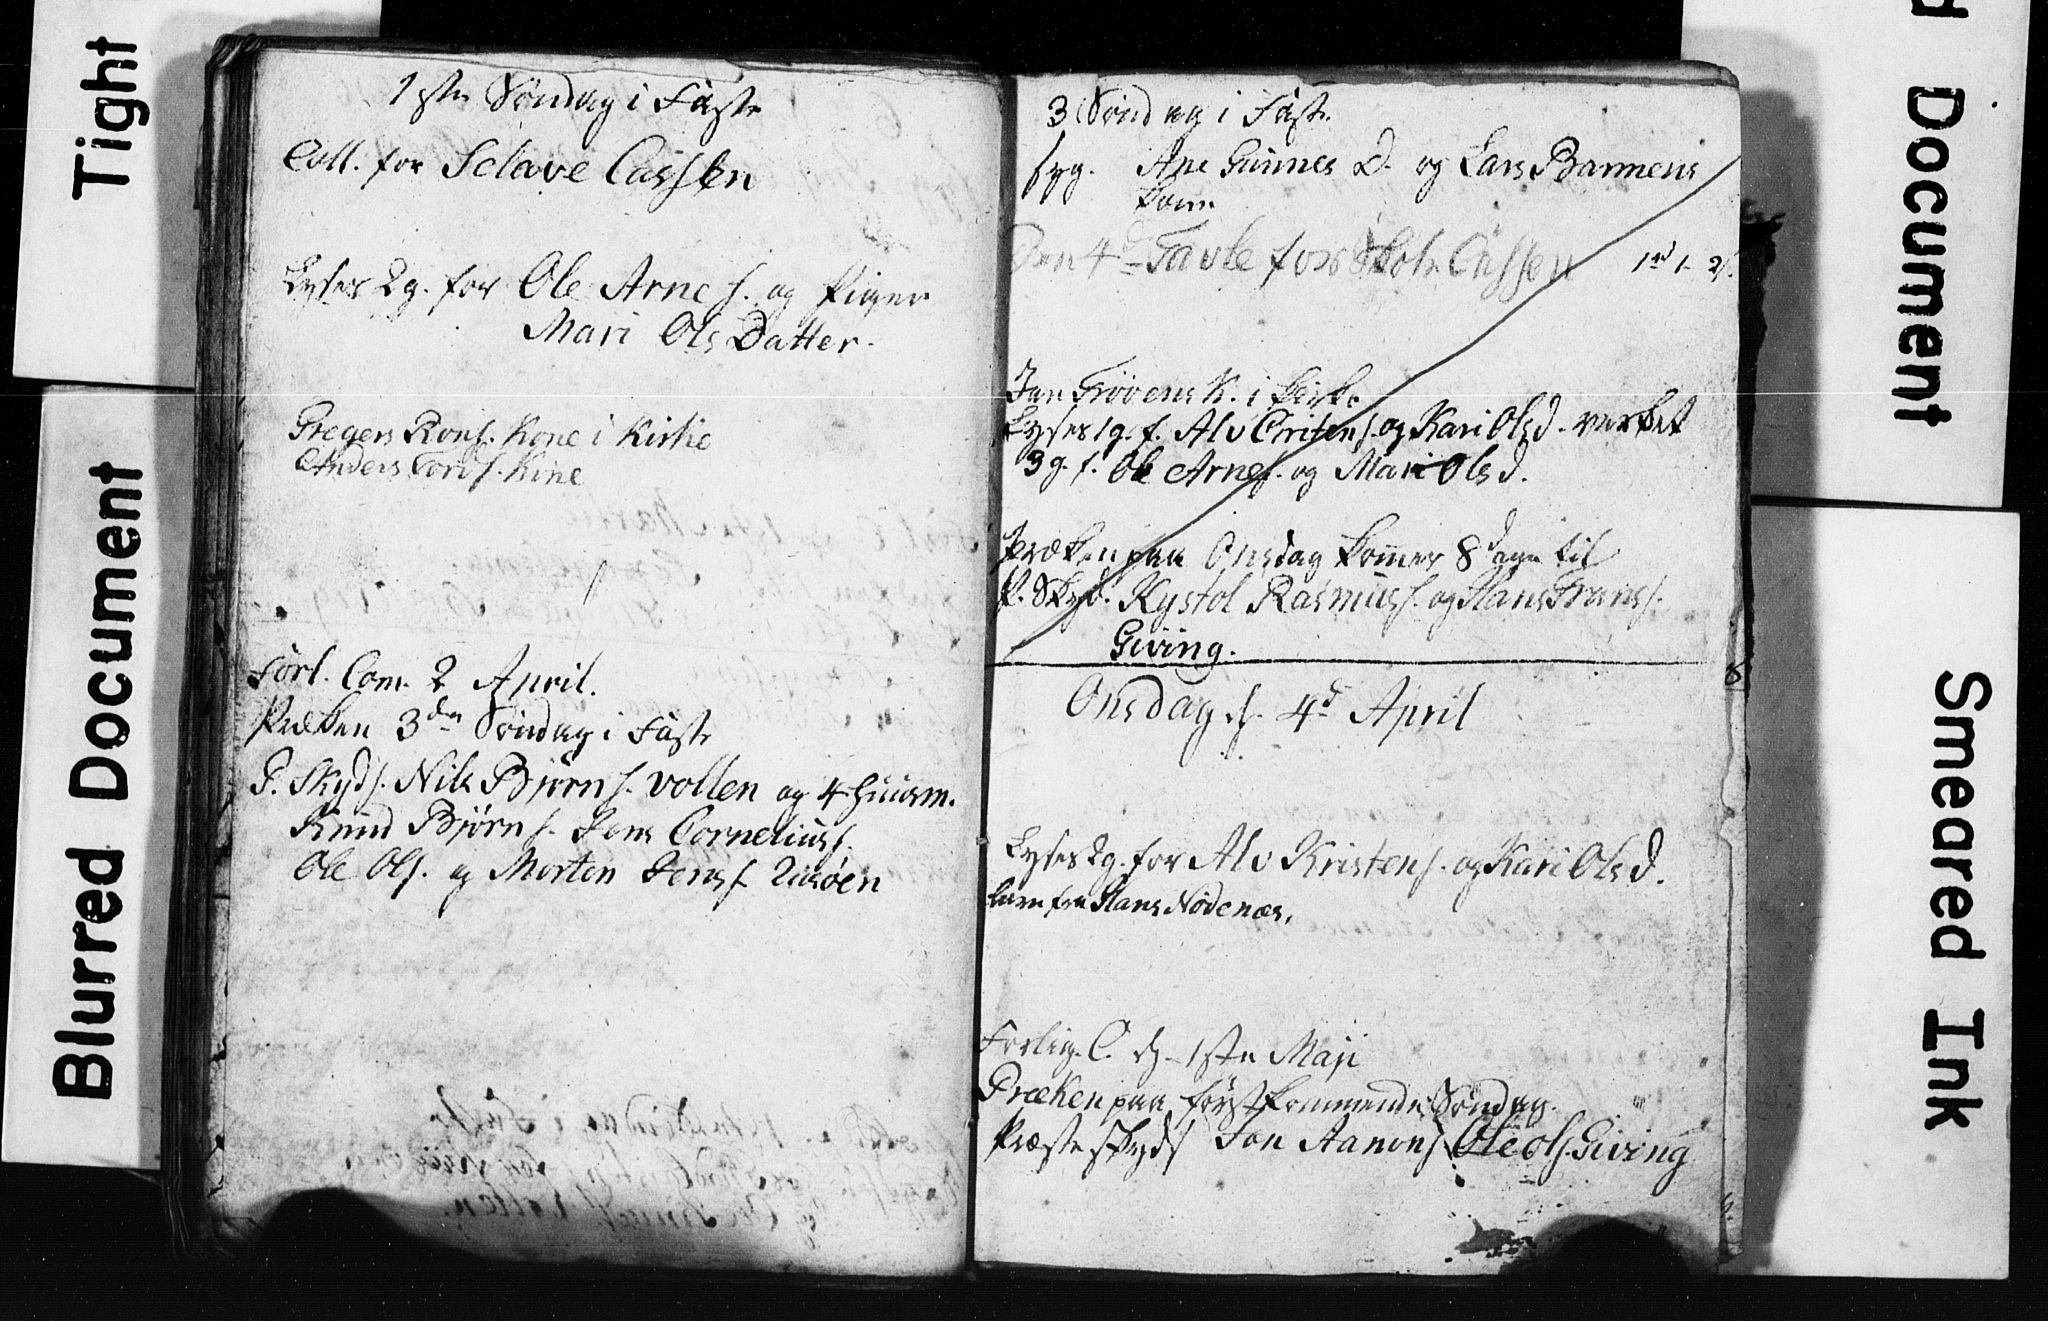 1ste Søndag i Faste
Coll. for Sclave Cassen
Lyses 2g. for Ole Arne s. og Pigen
Mari Ols Datter.
Gregers Rons. Kone i Kirke
Anders Tords. Kone
Forl. Com. 2 April.
Præken 3de Søndag i Faste
P. Skyds. Nils Bjørn s. Vollen og 4 Huusm.
Knud Bjørn s. Jens Cornelius s.
Ole Ols. og Morten Jens s.
3 Søndag i Faste
syg. Ane Gunnes D. og Lars Barmens
Kone
Den 4d Tavle for Skole Cassen
Jan Trøvens K. i Kirke
Lyses 1g. f. Alv Cristens. og Kari Olsd. værket
3g. f. Ole Arnes. og Mari Olsd.
Præken paa Onsdag kommer 8 dage til
P. Skyd. Kystol Rasmus s. og Hans Frans s.
Giving.
Onsdag d. 4d April
Lyses 2g. for Alv Kristens. og Kari Olsd.
Barn fra Hans Nødenæs.
Forlig. C. d. 1ste Maji
Præken paa førstkommende Søndag.
Præste skyds Jon Aanons. Ole Ols. Giving
Tight
Blurred Document
Document
Smeared Ink